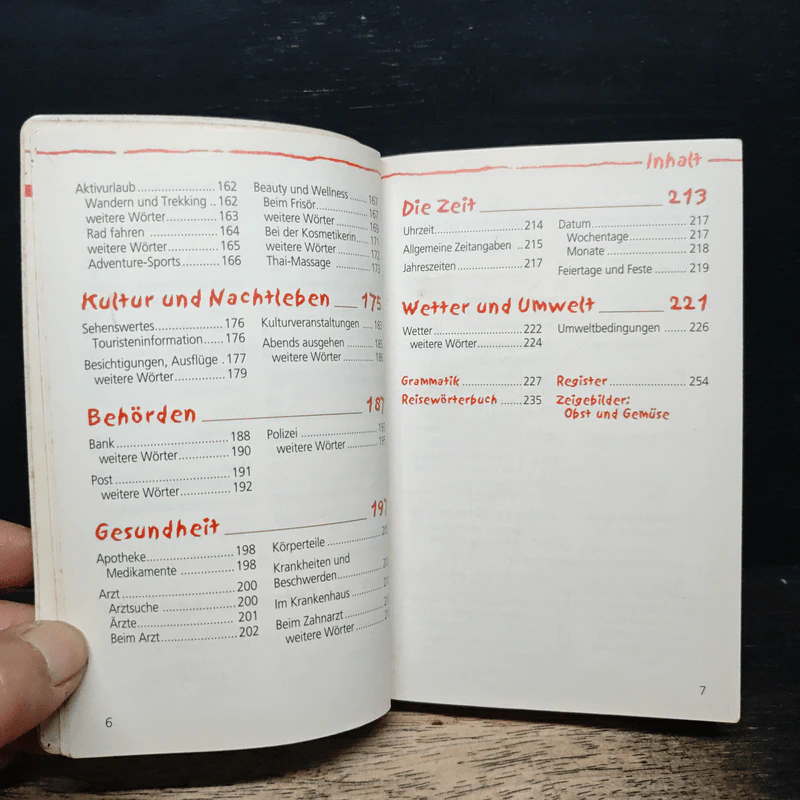 Aktivurlaub........................ 162
Wandern und Trekking .. 162
weitere Wörter............... 163
Rad fahren ..................... 164
weitere Wörter............... 165
Adventure-Sports ........... 166
Beauty und Wellness ..... 167
Beim Frisör.................... 167
weitere Wörter ..............
Bei der Kosmetikerin.... 171
weitere Wörter .............. 172
Thai-Massage ............... 173
Kultur und Nachtleben 175
Sehenswertes..................... 176
Touristeninformation...... 176
Besichtigungen, Ausflüge . 177
weitere Wörter............... 179
Kulturveranstaltungen .... 183
Abends ausgehen .......... 185
weitere Wörter ............. 186
Behörden 187
Bank.................................. 188
weitere Wörter............... 190
Post.................................... 191
weitere Wörter............... 192
Polizei ........................
weitere Wörter .............
Gesundheit 197
Apotheke........................... 198
Medikamente ................. 198
Arzt.................................... 200
Arztsuche ....................... 200
Ärzte................................ 201
Beim Arzt........................ 202
Körperteile ..................
Krankheiten und
Beschwerden...............
Im Krankenhaus ...........
Beim Zahnarzt .............
weitere Wörter ............
6
Inhalt
Die Zeit 213
Uhrzeit.............................. 214
Allgemeine Zeitangaben .. 215
Jahreszeiten...................... 217
Datum................................ 217
Wochentage.................... 217
Monate ........................... 218
Feiertage und Feste .......... 219
Wetter und Umwelt 221
Wetter............................... 222
weitere Wörter............... 224
Umweltbedingungen ....... 226
Grammatik .................. 227
Reisewörterbuch ....... 235
Register ........................ 254
Zeigebilder:
Obst und Gemüse
7